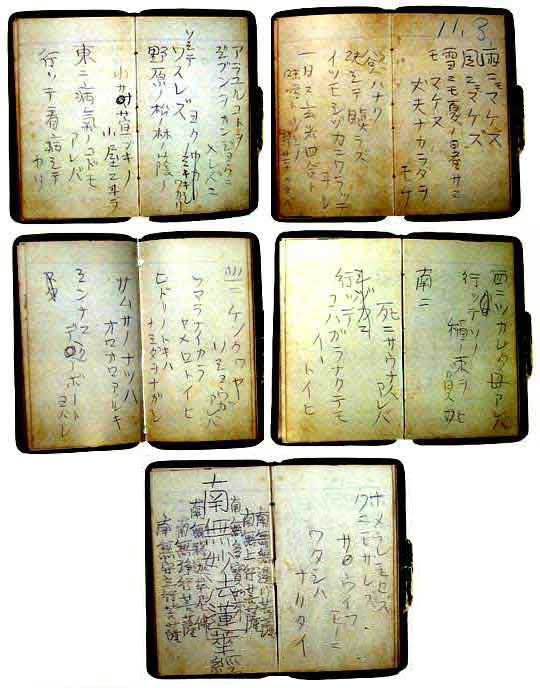 11.3.
雨ニモマケズ
風ニモマケズ
雪ニモ夏ノ暑サニモ
マケヌ
丈夫ナカラダヲ
モチ
慾ハナク
決シテ瞋ラズ
イツモシヅカニワラッテ
ヰル
一日ニ玄米四合ト
味噌ト少シノ
野菜ヲタベ
アラユルコトヲ
ジブンヲカンジョウニ
入レズニ
ヨクミキキシワカリ
ソシテ
ワスレズ
野原ノ松ノ林ノ蔭ノ
小サナ萓ブキノ
小屋ニヰテ
東ニ病氣ノコドモ
アレバ
行ッテ看病シテ
ヤリ
西ニツカレタ母アレバ
行ッテソノ
稲ノ束ヲ
負ヒ
南ニ
死ニサウナ人
アレバ
行ッテ
コハガラナクテモ
イヽ
トイヒ
北ニケンクヮヤ
ソショウガ
アレバ
ツマラナイカラ
ヤメロトイヒ
ヒドリノトキハ
ナミダヲナガシ
サムサノナツハ
オロオロアルキ
ミンナニ
デクノボート
ヨバレ
ホメラレモセズ
クニモサレズ
サウイフ
モノニ
ワタシハ
ナリタイ
南無無邊行菩薩
南無上行菩薩
南無多寳如来
南無妙法蓮華経
南無釈迦牟尼佛
南無浄行菩薩
南無安立行菩薩